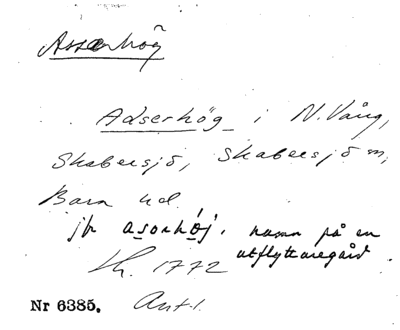 Asserhög
Adserhög i N. Vång,
Skabersjö, Skabersjö m,
Bara hd
jfr asorhój, namn på en
utflyttaregård.
Lh. 1772
Nr 6385. Ant.